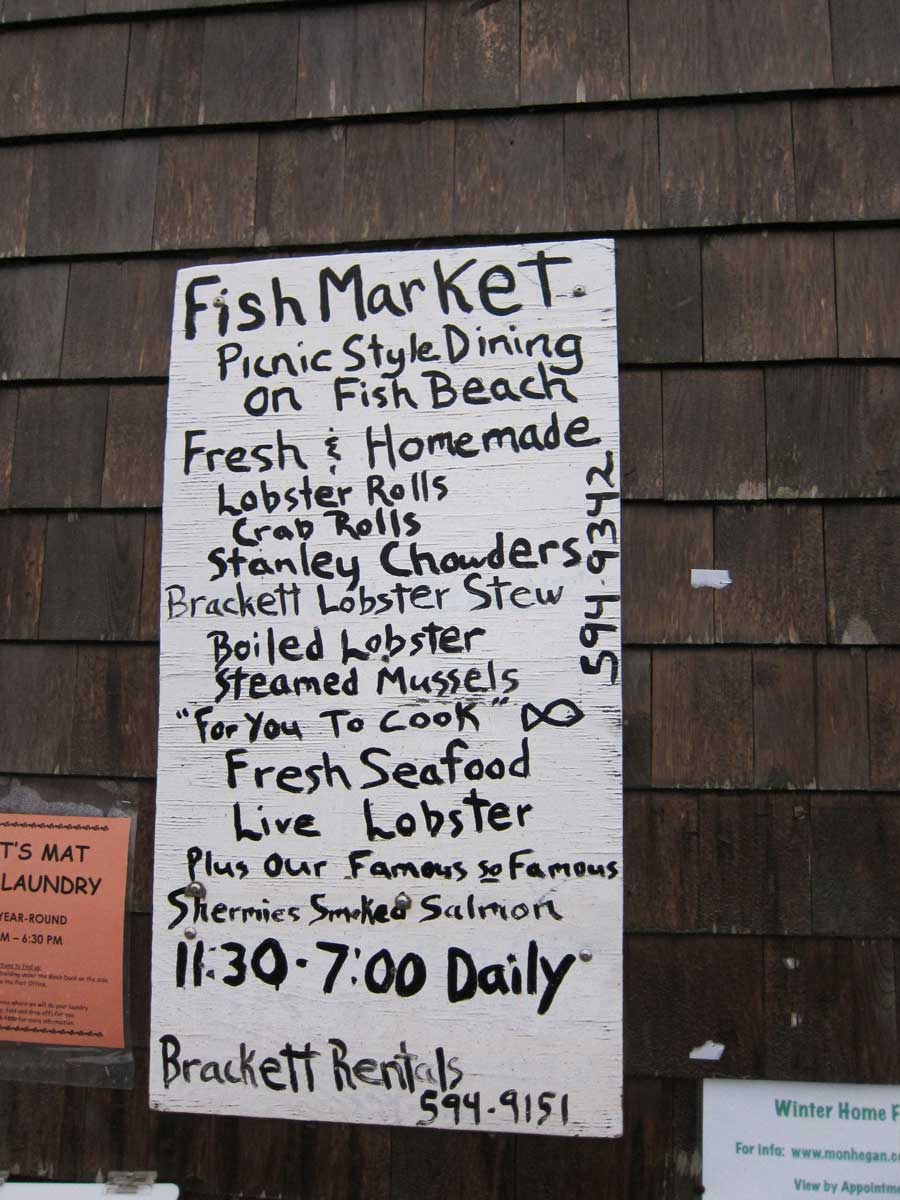 Fish Market
Picnic Style Dining
on Fish Beach
Fresh & Homemade
Lobster Rolls
Crab Rolls
Stanley Chowders
Brackett Lobster Stew
Boiled Lobster
Steamed Mussels
"For You To Cook"
Fresh Seafood
Live Lobster
Plus Our Famous so Famous
Shermies Smoked Salmon
11:30-7:00 Daily
Brackett Rentals
594-9151
594-9342
T'S MAT
LAUNDRY
YEAR-ROUND
M – 6:30 PM
Winter Home F
For info: www.monhegan.c
View by Appointme